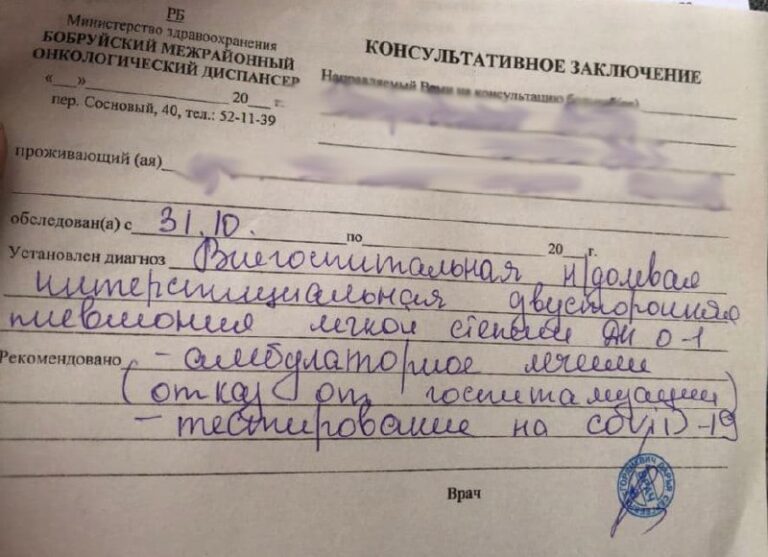 РБ
Министерство здравоохранения
БОБРУЙСКИЙ МЕЖРАЙОННЫЙ
ОНКОЛОГИЧЕСКИЙ ДИСПАНСЕР
«___»____________ 20___ г.
пер. Сосновый, 40, тел.: 52-11-39
КОНСУЛЬТАТИВНОЕ ЗАКЛЮЧЕНИЕ
Направляемый Вами на консультацию
проживающий (ая)
обследован(а) с 31.10. по 20___г.
Установлен диагноз Внегоспитальная н/долевая
интерстициальная двусторонняя
пневмония легкой степени ДН 0-1
Рекомендовано - амбулаторное лечение
(отказ от госпитализации)
- тестирование на COVID-19
Врач
ВРАЧ